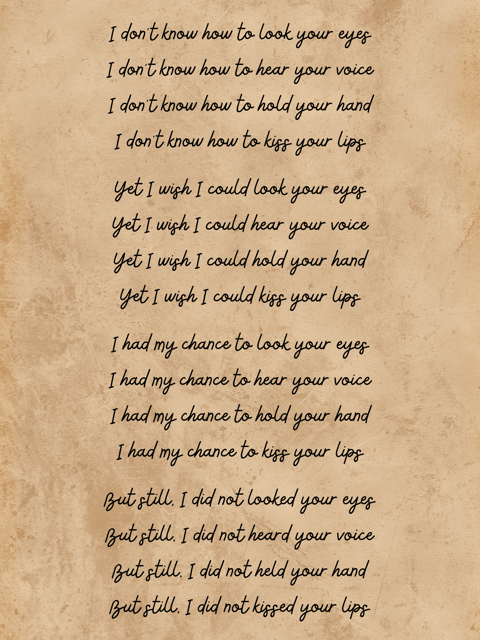 I don't know how to look your eyes
I don't know how to hear your voice
I don't know how to hold your hand
I don't know how to kiss your lips
Yet I wish I could look your eyes
Yet I wish I could hear your voice
Yet I wish I could hold your hand
Yet I wish I could kiss your lips
I had my chance to look your eyes
I had my chance to hear your voice
I had my chance to hold your hand
I had my chance to kiss your lips
But still, I did not looked your eyes
But still, I did not heard your voice
But still, I did not held your hand
But still, I did not kissed your lips